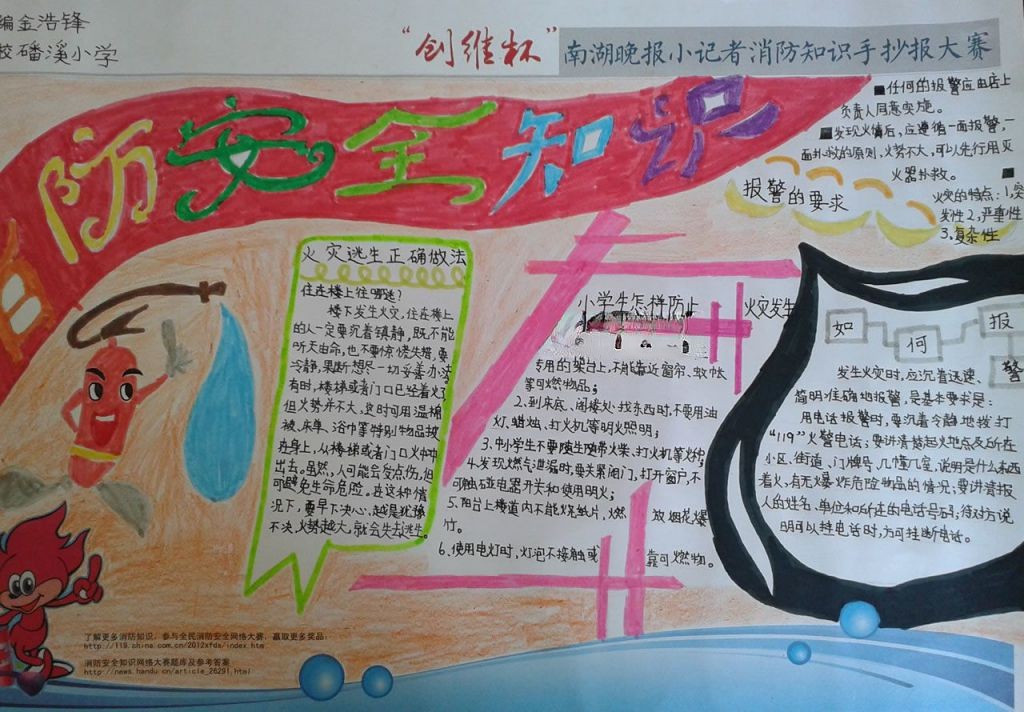 编金浩锋
校磻溪小学
“创维杯”南湖晚报小记者消防知识手抄报大赛
防安全知识
■任何的报警应由店上
负责人同意实施。
■发现火情后,应遵循一面报警,一
面扑救的原则,火势不大,可少人先行用灭
火器扑救。
■
火灾的特点:1,突
发性2,严重性
3,复杂性
报警的要求
火灾逃生正确做法
住在楼上往哪逃?
楼下发生火灾,住在楼上
的人一定要沉着镇静,既不能
听天由命,也不要惊慌失措,要
冷静,果断想尽一切妥善办法
有时,楼梯或者门口已经着火了
但火势并不大,这时可用湿棉
被、床单、浴巾等特别物品披
在身上,从楼梯或者门口火中冲
出去。虽然,人可能会受点伤,但
可避免生命危险。在这种情
况下,要早下决心,越是犹豫
不决,火势越大,就会失去逃生。
小学生怎样防止 火灾发生
专用的架台上,不能靠近窗帘、蚊帐
等可燃物品;
2、到床底、阁楼处找东西时,不要用油
灯、蜡烛、打火机等明火照明;
3、中小学生不要随生随带火柴、打火机等火种;
4、发现燃气泄漏时,要关紧阀门,打开窗户,不
可触碰电器开关和使用明火;
5、阳台上楼道内不能烧纸片,燃 放烟花爆
竹。
6、使用电灯时,灯泡不接触或 靠可燃物。
如何报警
发生火灾时,应沉着迅速、
简明准确地报警,是基本要求是:
用电话报警时,要沉着冷静地拨打
“119”火警电话;要讲清楚起火地点及所在
小区、街道、门牌号、几幢几室,说明是什么东西
着火,有无爆炸危险物品的情况;要讲清报
人的姓名、单位和所在的电话号码;待对方说
明可以挂电话时,方可挂断电话。
了解更多消防知识,参与全民消防安全网络大赛,赢取更多奖品:
http://119.china.com.cn/2012xfds/index.htm
消防安全知识网络大赛题库及参考答案
http://news.handu.cn/article_26291.html